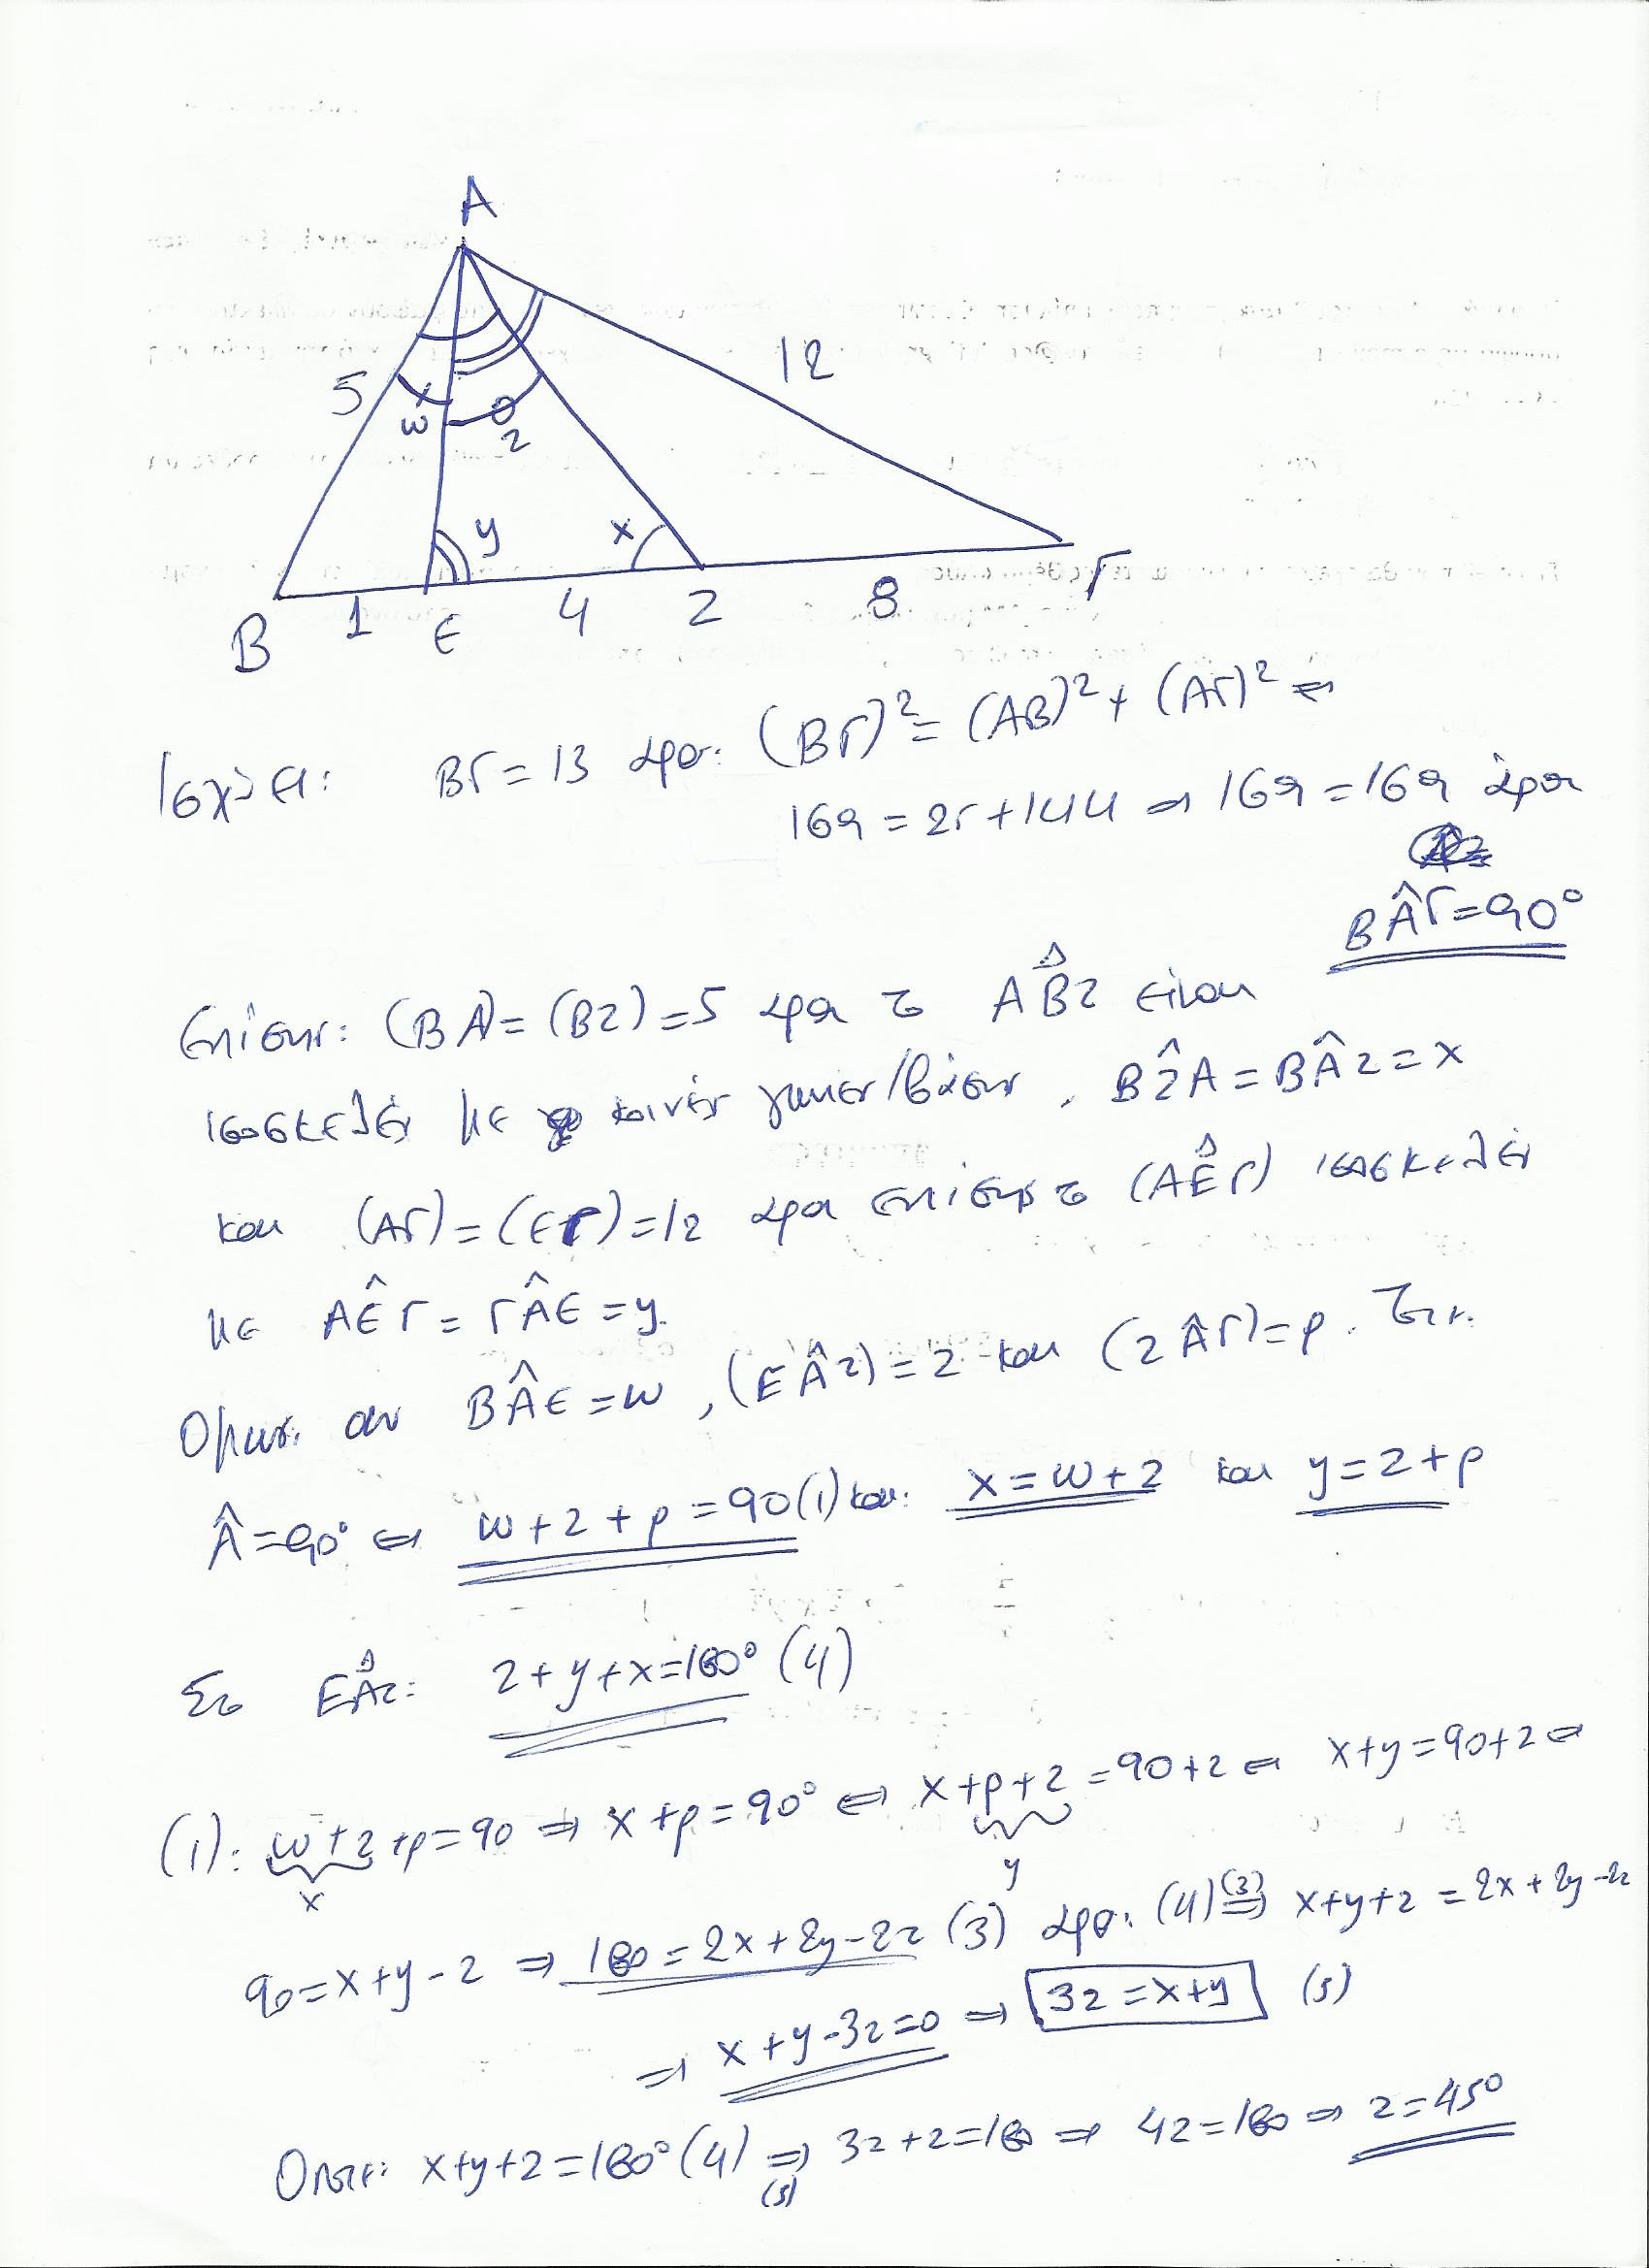 A
5
12
x
ω
θ
z
y
x
B
1
E
4
Z
8
Γ
Ισχύει: ΒΓ = 13 άρα: (ΒΓ)² = (ΑΒ)² + (ΑΓ)² ⇔
169 = 25 + 144 ⇒ 169 = 169 άρα
ΒÂΓ = 90°
Επίσης: (ΒΑ) = (ΒΖ) = 5 άρα το ΑΒΖ είναι
ισοσκελές με κοινές γωνίες βάσης, ΒẐΑ = ΒÂΖ = x
και (ΑΓ) = (ΕΓ) = 12 άρα επίσης το (ΑΕΓ) ισοσκελές
με ΑÊΓ = ΓÂΕ = y.
Όμως αν ΒÂΕ = ω, (ΕÂΖ) = z και (ΖÂΓ) = ρ. Τότε.
Â = 90° ⇔ ω + z + ρ = 90 (1) και: x = ω + z και y = z + ρ
Στο ΕΑΖ: z + y + x = 180° (4)
(1): ω + z + ρ = 90 ⇒ x + ρ = 90° ⇔ x + ρ + z = 90 + z ⇔ x + y = 90 + z ⇔
x
y
90 = x + y - z ⇒ 180 = 2x + 2y - 2z (3) άρα: (4) (3)⇒ x + y + z = 2x + 2y - 2z
⇒ x + y - 3z = 0 ⇒ 3z = x + y (5)
Οπότε: x + y + z = 180° (4) ⇒ 3z + z = 180 ⇒ 4z = 180 ⇒ z = 45°
(5)